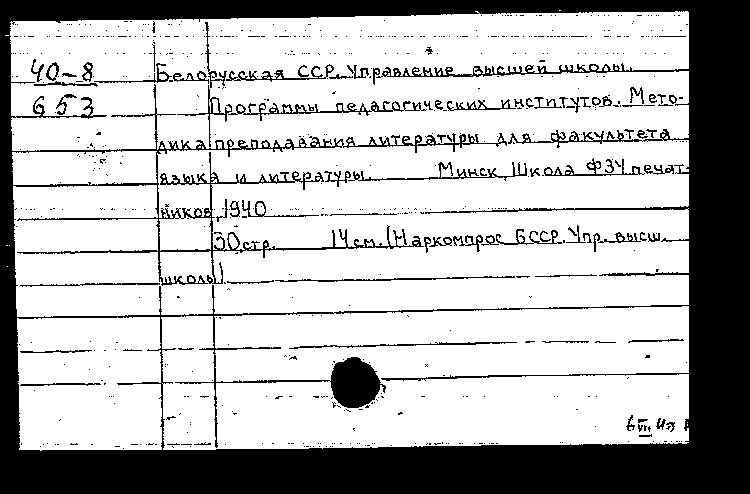 40-8
653
Белорусская ССР. Управление высшей школы.
Программы педагогических институтов. Мето-
дика преподавания литературы для факультета
языка и литературы. Минск, Школа ФЗУ печат-
ников, 1940
30 стр. 14 см. (Наркомпрос БССР. Упр. высш.
школы)